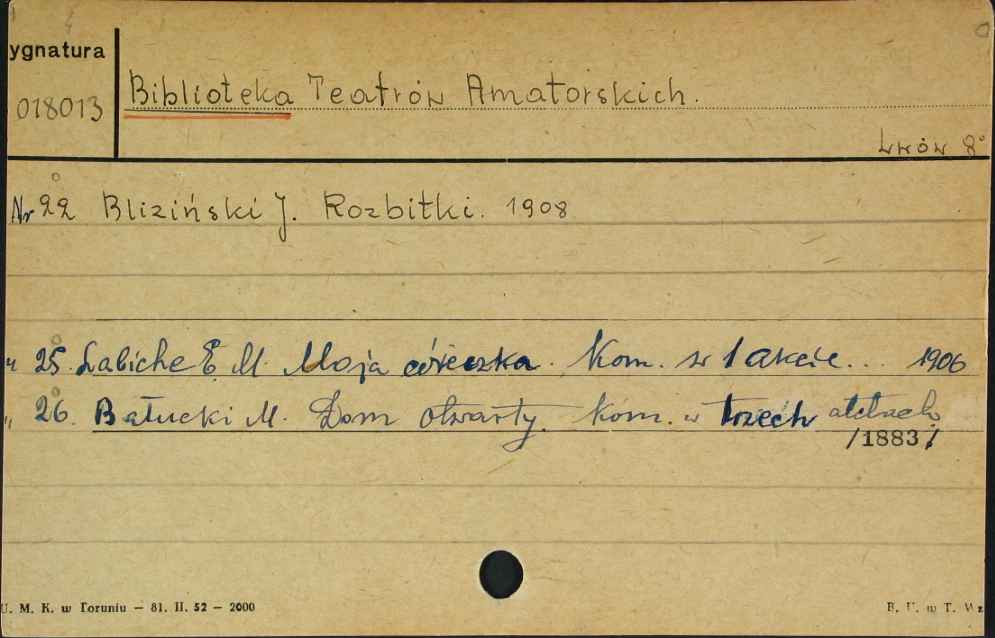 ygnatura
018013 Biblioteka Teatrów Amatorskich.
Lwów 8°
Nr 22 Bliziński J. Rozbitki. 1908
" 25. Labiche E. M. Moja córeczka. Kom. w 1 akcie... 1906
" 26. Bałucki M. Dom otwarty. Kom. w trzech aktach.
/1883/
U. M. K. w Toruniu — 81. II. 52 — 2000
B. U. w T. Wz